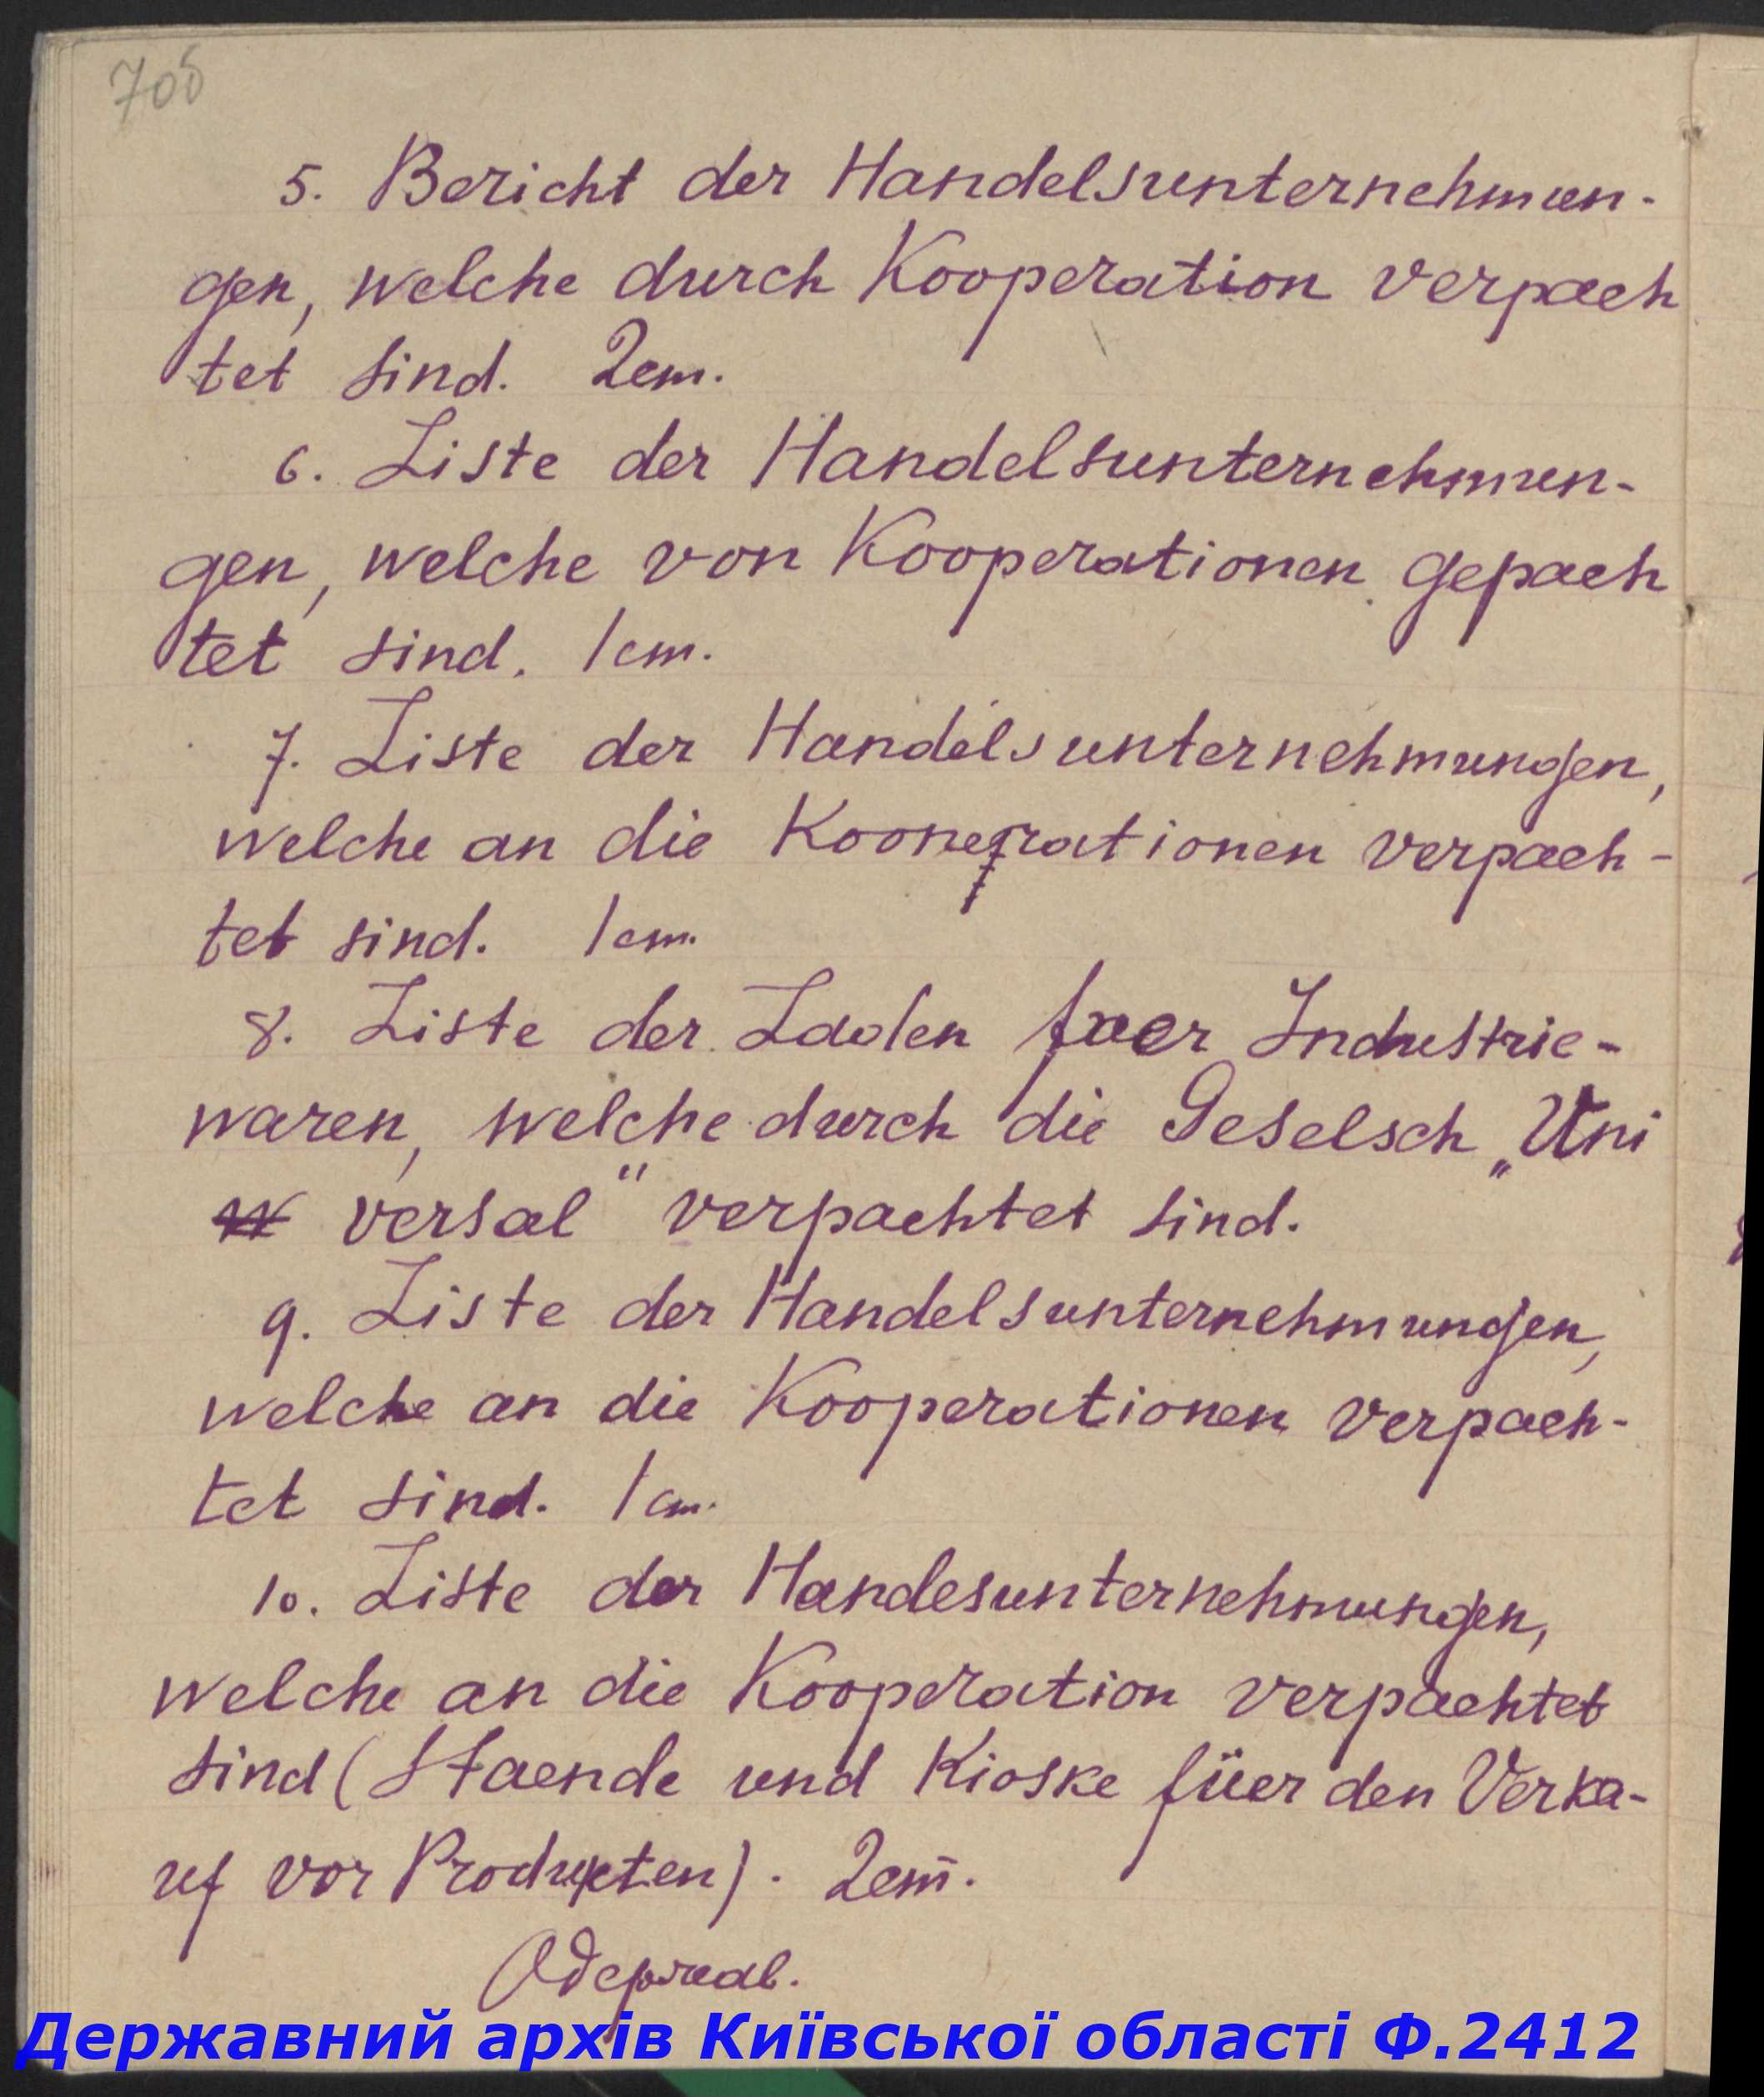 70б
5. Bericht der Handelsunternehmun-
gen, welche durch Kooperation verpach
tet sind. 2em.
6. Liste der Handelsunternehmun-
gen, welche von Kooperationen gepach
tet sind. 1em.
7. Liste der Handelsunternehmungen,
welche an die Kooperationen verpach-
tet sind. 1em.
8. Liste der Laden fuer Industrie-
waren, welche durch die Geselsch „Uni
versal" verpachtet sind.
9. Liste der Handelsunternehmungen,
welche an die Kooperationen verpach-
tet sind. 1em.
10. Liste der Handesunternehmungen,
welche an die Kooperation verpachtet
sind (Staende und Kioske füer den Verka-
uf vor Produkten). 2em.
Одержав.
Державний архів Київської області Ф.2412